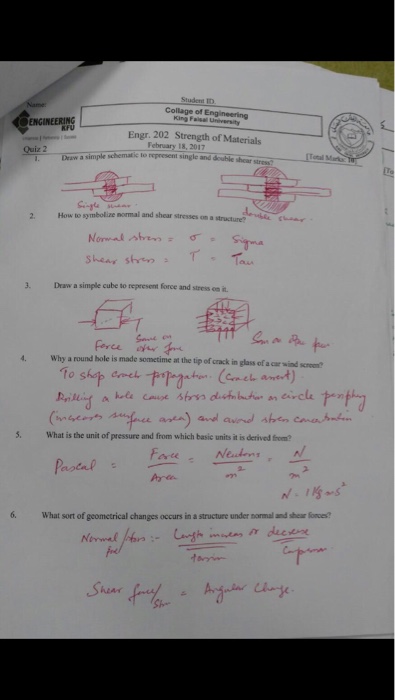 Name:
Student ID:
ENGINEERING
KFU
College of Engineering
King Faisal University
Engr. 202 Strength of Materials
February 18, 2017
Quiz 2
[Total Marks: 10]
1. Draw a simple schematic to represent single and double shear stress?
Single shear
double shear
2. How to symbolize normal and shear stresses on a structure?
Normal stress = σ = Sigma
Shear stress = τ = Tau
3. Draw a simple cube to represent force and stress on it.
Force
Same on
other face
4. Why a round hole is made sometime at the tip of crack in glass of a car wind screen?
To stop crack propagation. (Crack arrest)
Drilling a hole cause stress distribution on circle periphery
(increases surface area) and avoid stress concentration
5. What is the unit of pressure and from which basic units it is derived from?
Pascal = Force / Area = Newtons / m² = N / m²
6. What sort of geometrical changes occurs in a structure under normal and shear forces?
Normal force :- Length increase or decrease
Shear force = Angular Change.